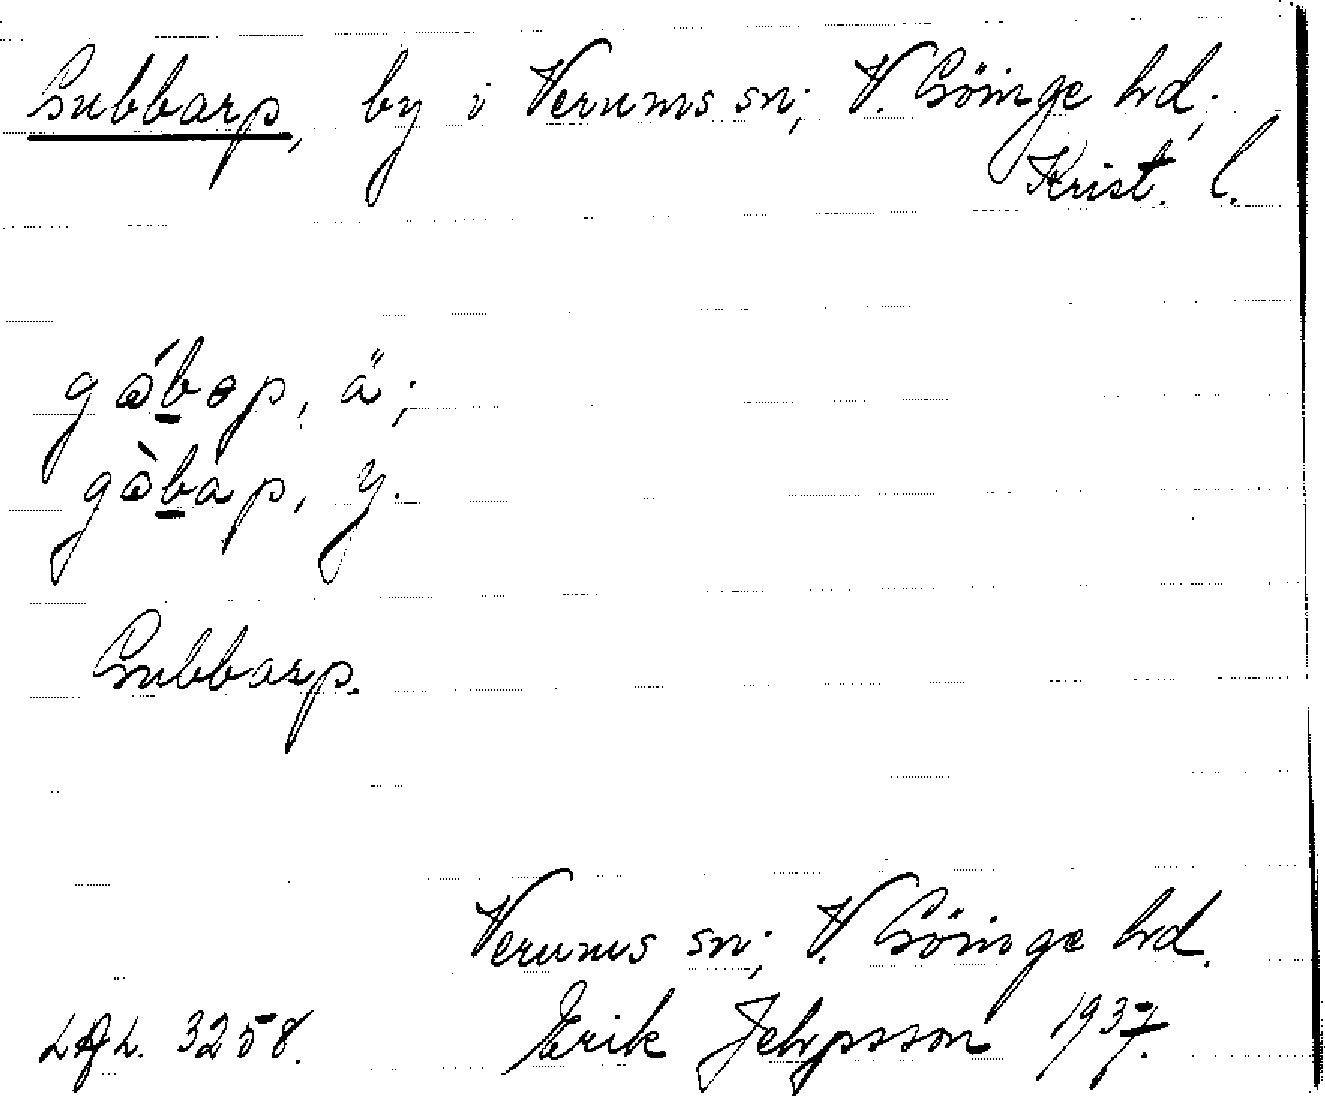 Gubbarp, by i Verums sn; V. Göinge hd;
Krist. l.
ä;
y.
Gubbarp.
Verums sn; V. Göinge hd.
3258. Erik Jeppsson 1937.